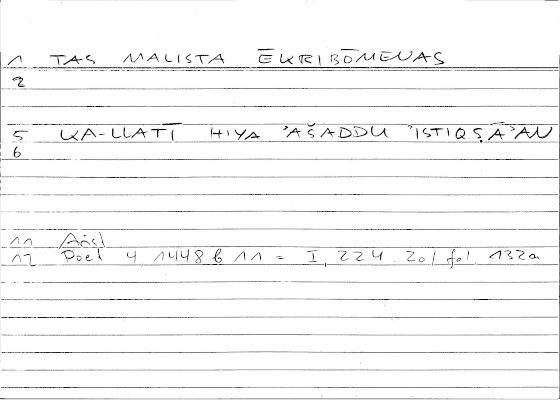 1 TAS MALISTA ĒKRIBŌMENAS
2
5 KA-LLATĪ HIYA ʾAŠADDU ʾISTIQṢĀʾAN
6
11 Arist
12 Poet 4 1448 b 11 = I, 224. 20 / fol 132a